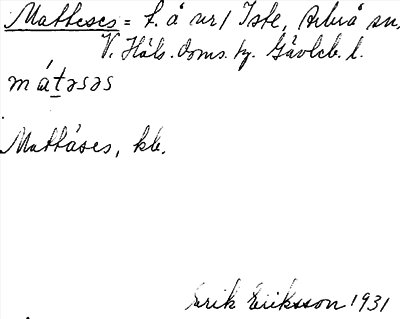 Matteses = t. å nr 1 Iste, Arbrå sn,
V. Häls. doms. hg. Gävleb. l.
mát̲əsəs
Mattáses, kb.
Erik Eriksson 1931